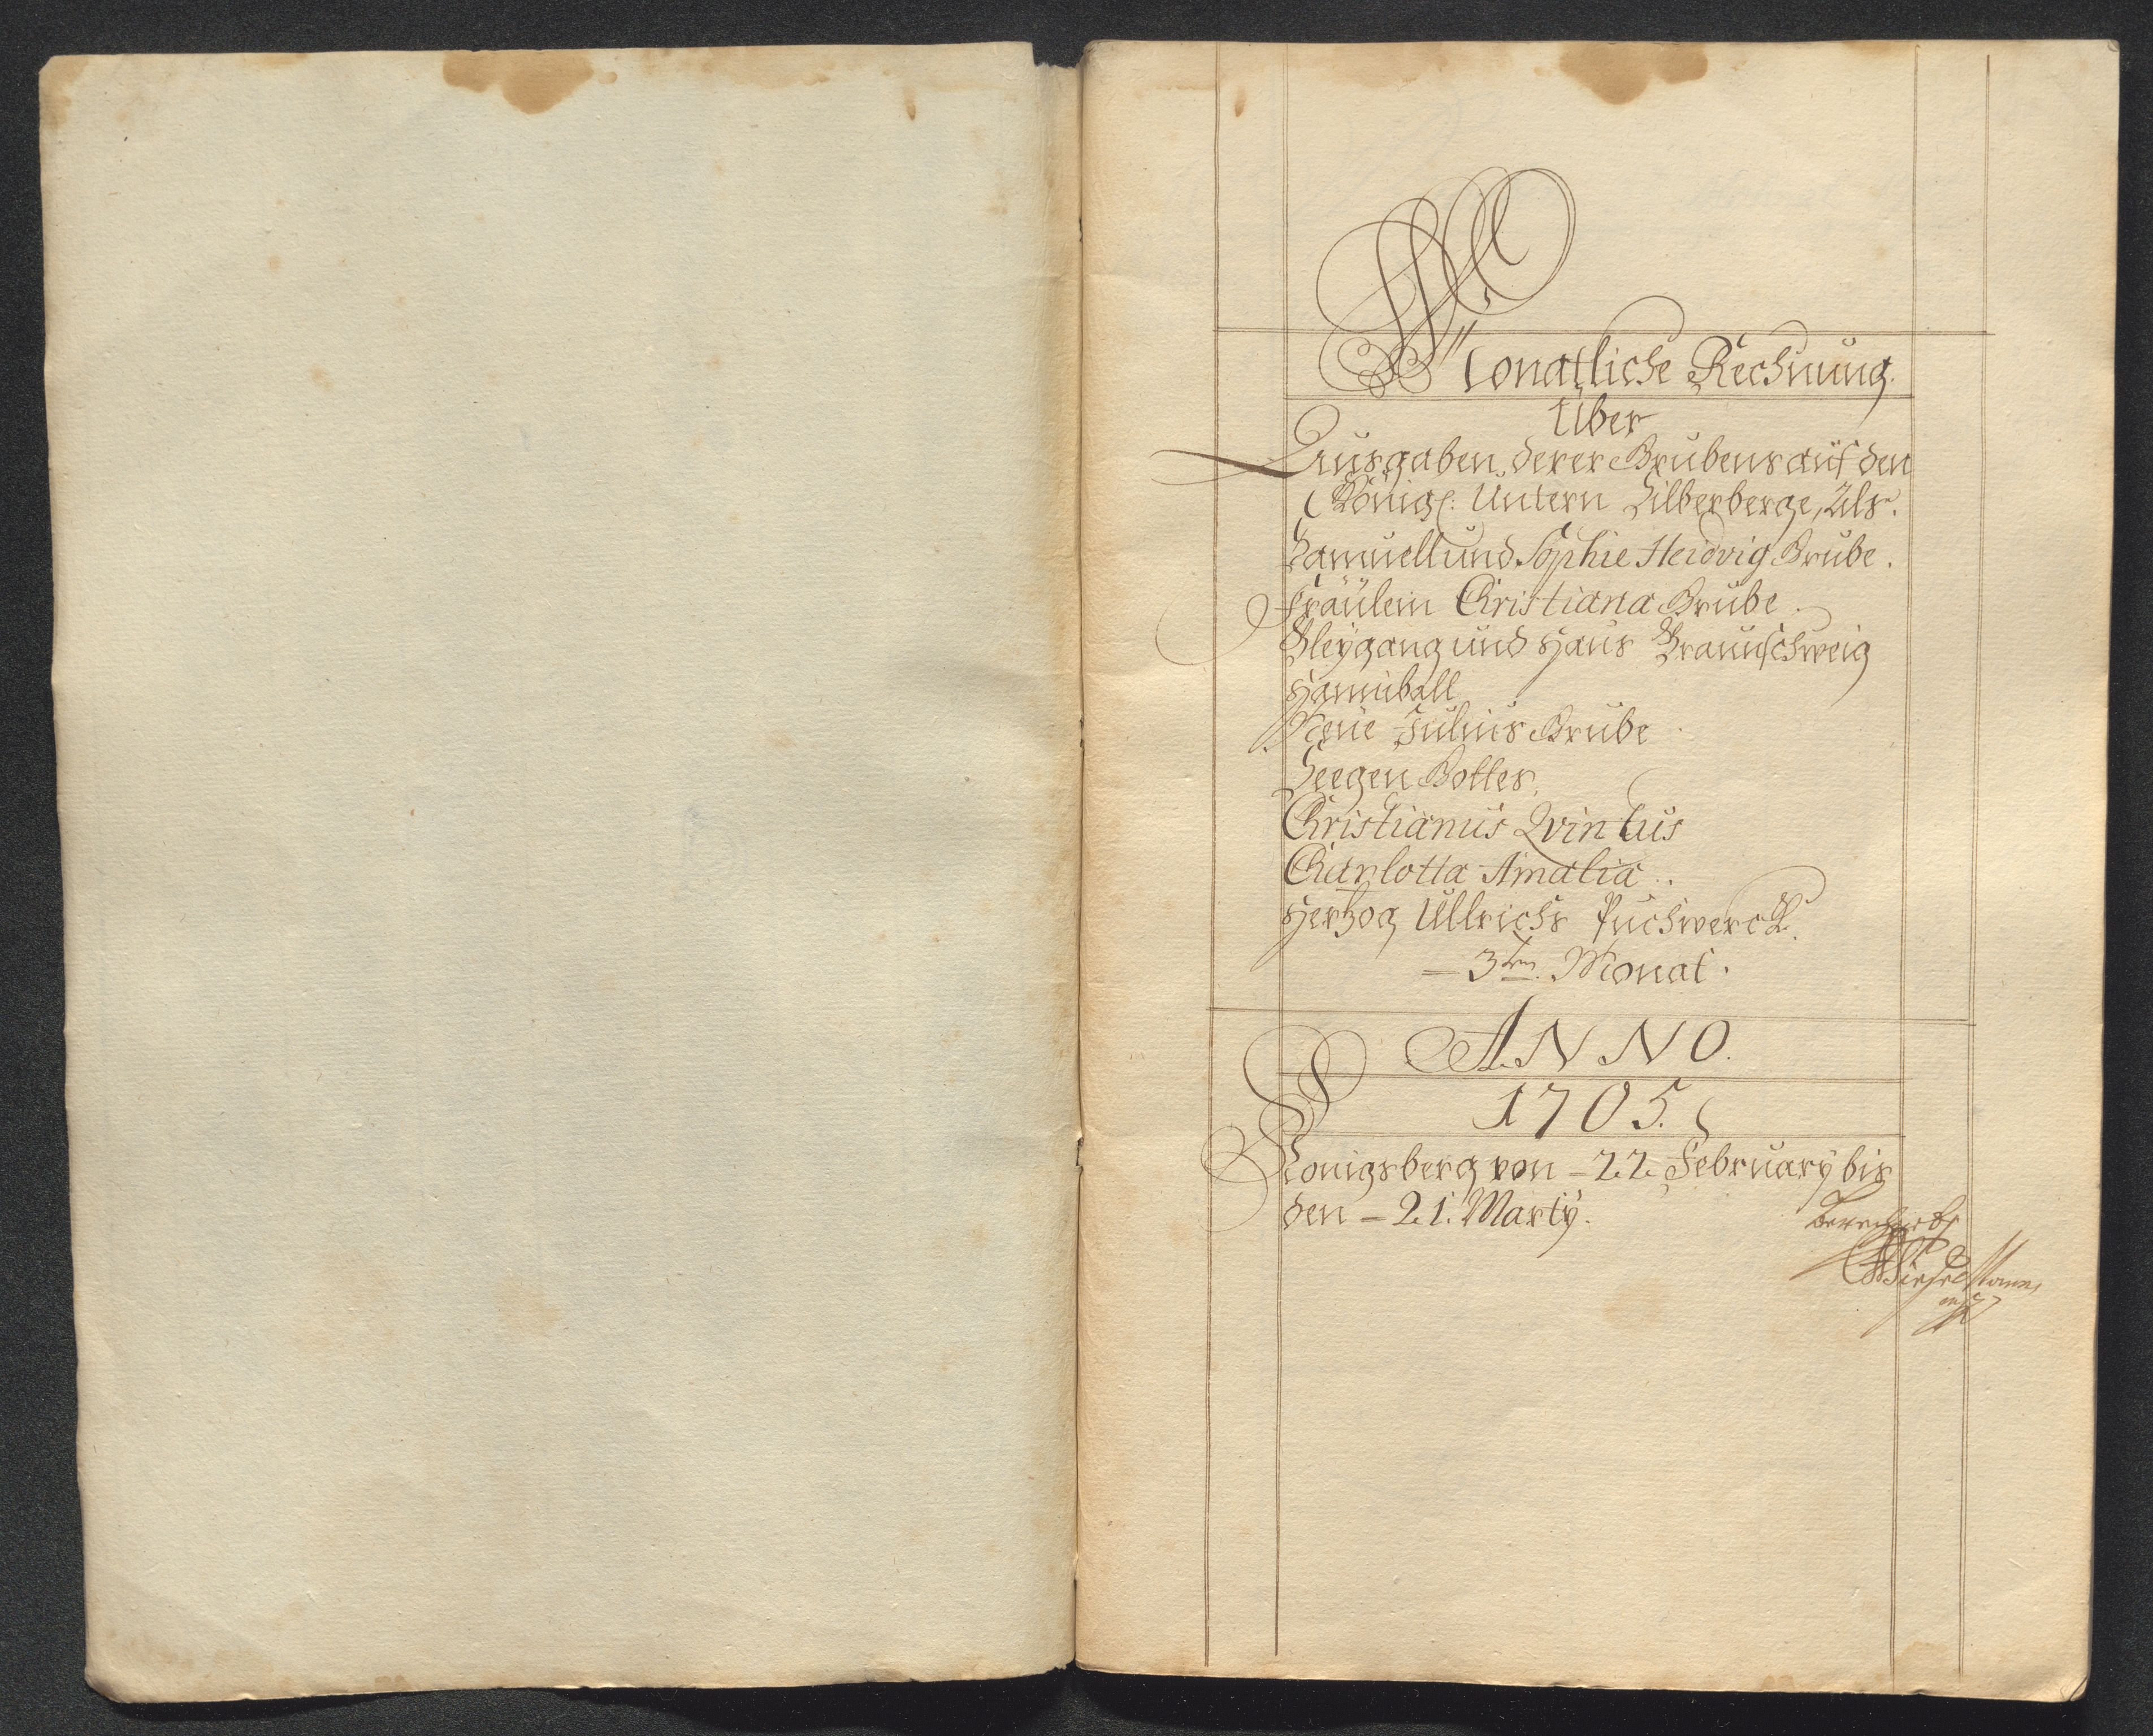 Monatliche Rechnung.
Über
Ausgaben, derer Grubens auf den
Königl: Untern Silberberge, Als.
Samuell und Sophie Hedvig Grube.
Fräülein Christiana Grube.
Bleygang und Haus Braunschweig
Hanniball
Neüe Julius Grube
Seegen Gottes.
Christianus Qvintus
Charlotta Amalia.
Hertzog Ullrichs Puchwerck.
3ten. Monat.
ANNO.
1705.
Kongsberg von 22. February bis
den 21. Marty.